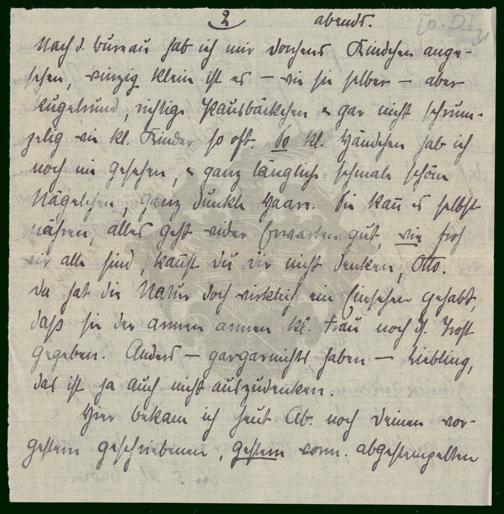 2 abends.
Nach d. bureau hab ich mir Dorchens Kindchen ange-
sehen, winzig klein ist es – wie sie selber – aber
kugelrund, richtige Pausbäckchen & gar nicht schrum-
pelig wie kl. Kinder so oft. So kl. Händchen hab ich
noch nie gesehen, & ganz längliche schmale schöne
Nägelchen, ganz dunkle Haare. Sie kann es selbst
nähren, alles geht wider Erwarten gut, wie froh
wir alle sind, kannst du dir nicht denken, Otto.
Da hat die Natur doch wirklich ein Einsehen gehabt,
daß sie der armen armen kl. Frau noch d. Trost
gegeben. Anders – gargarnichts haben – Liebling,
das ist ja auch nicht auszudenken.
Hier bekam ich heut Ab. noch Deinen vor-
gestern geschriebenen, gestern vorm. abgestempelten